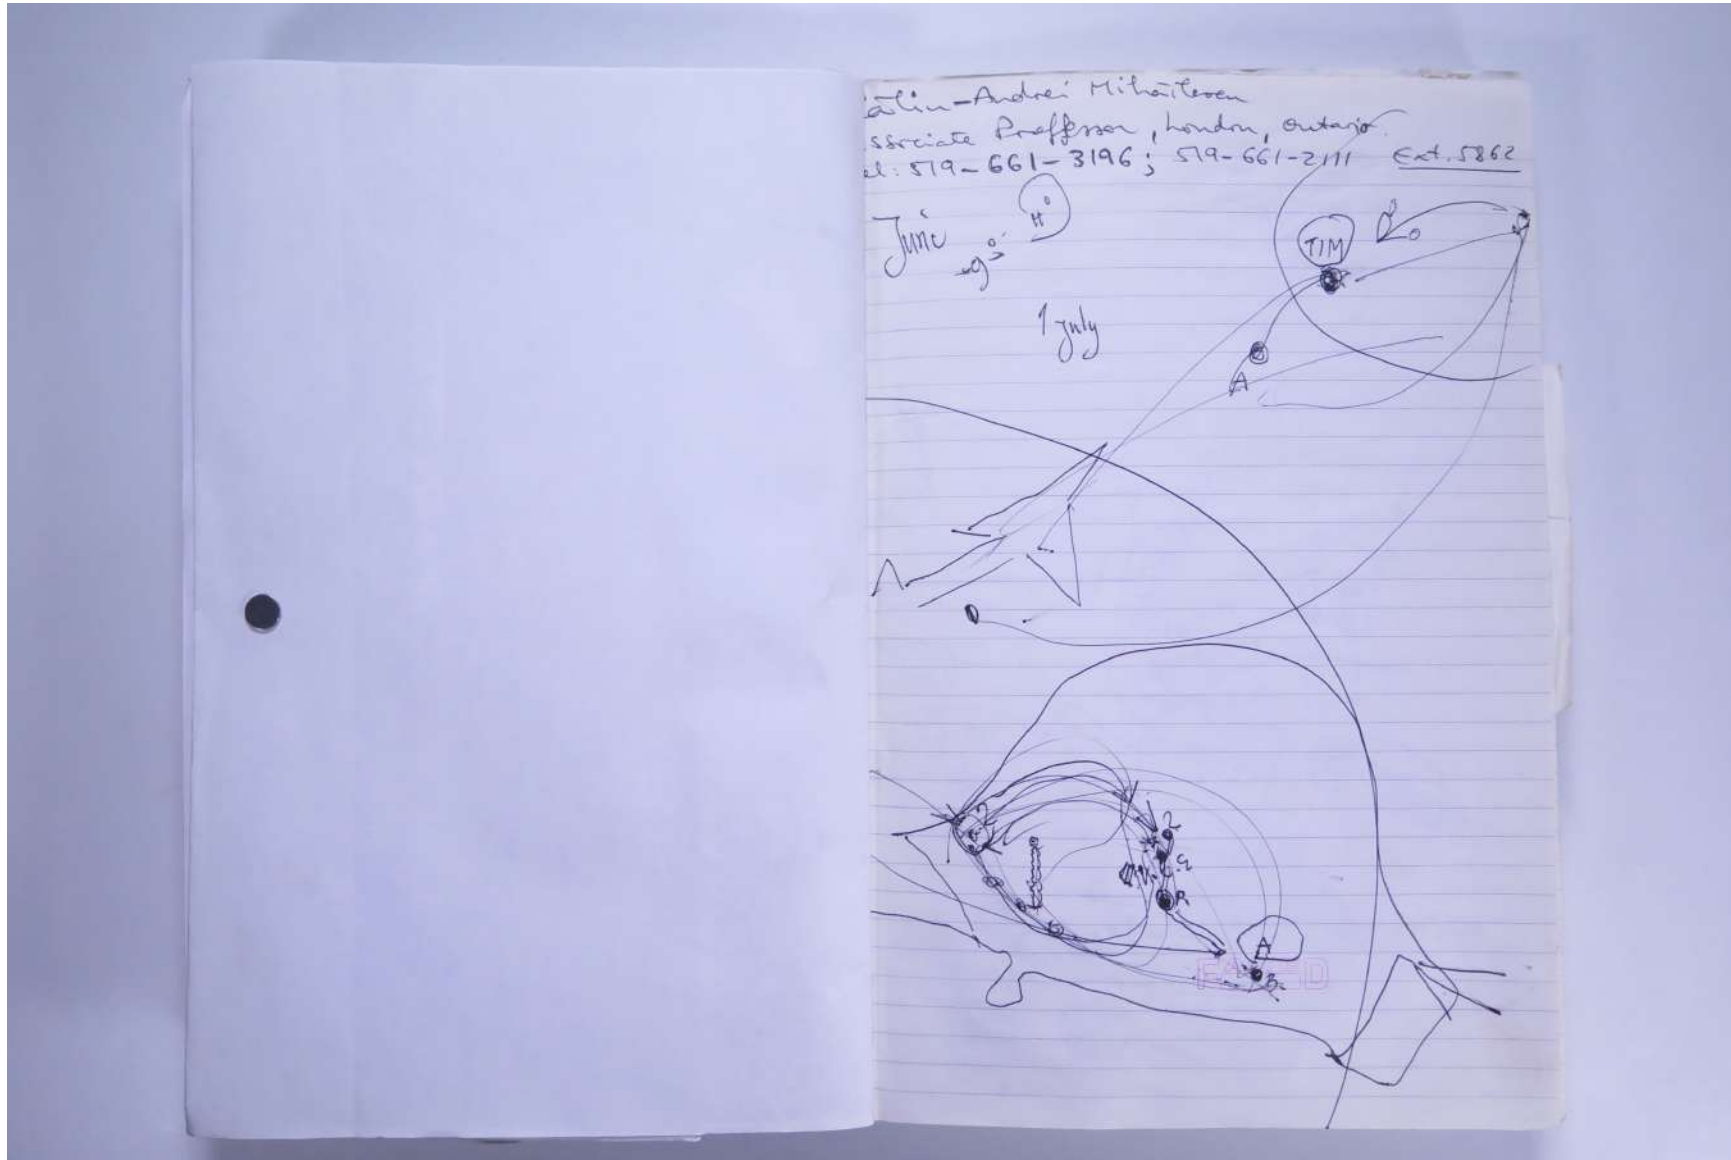 ălin-Andrei Mihăilescu
ssociate Proffessor, London, Ontario.
el: 519-661-3196; 519-661-2111 Ext. 5862
June
H
TIM
1 july
A
2
R
A
B